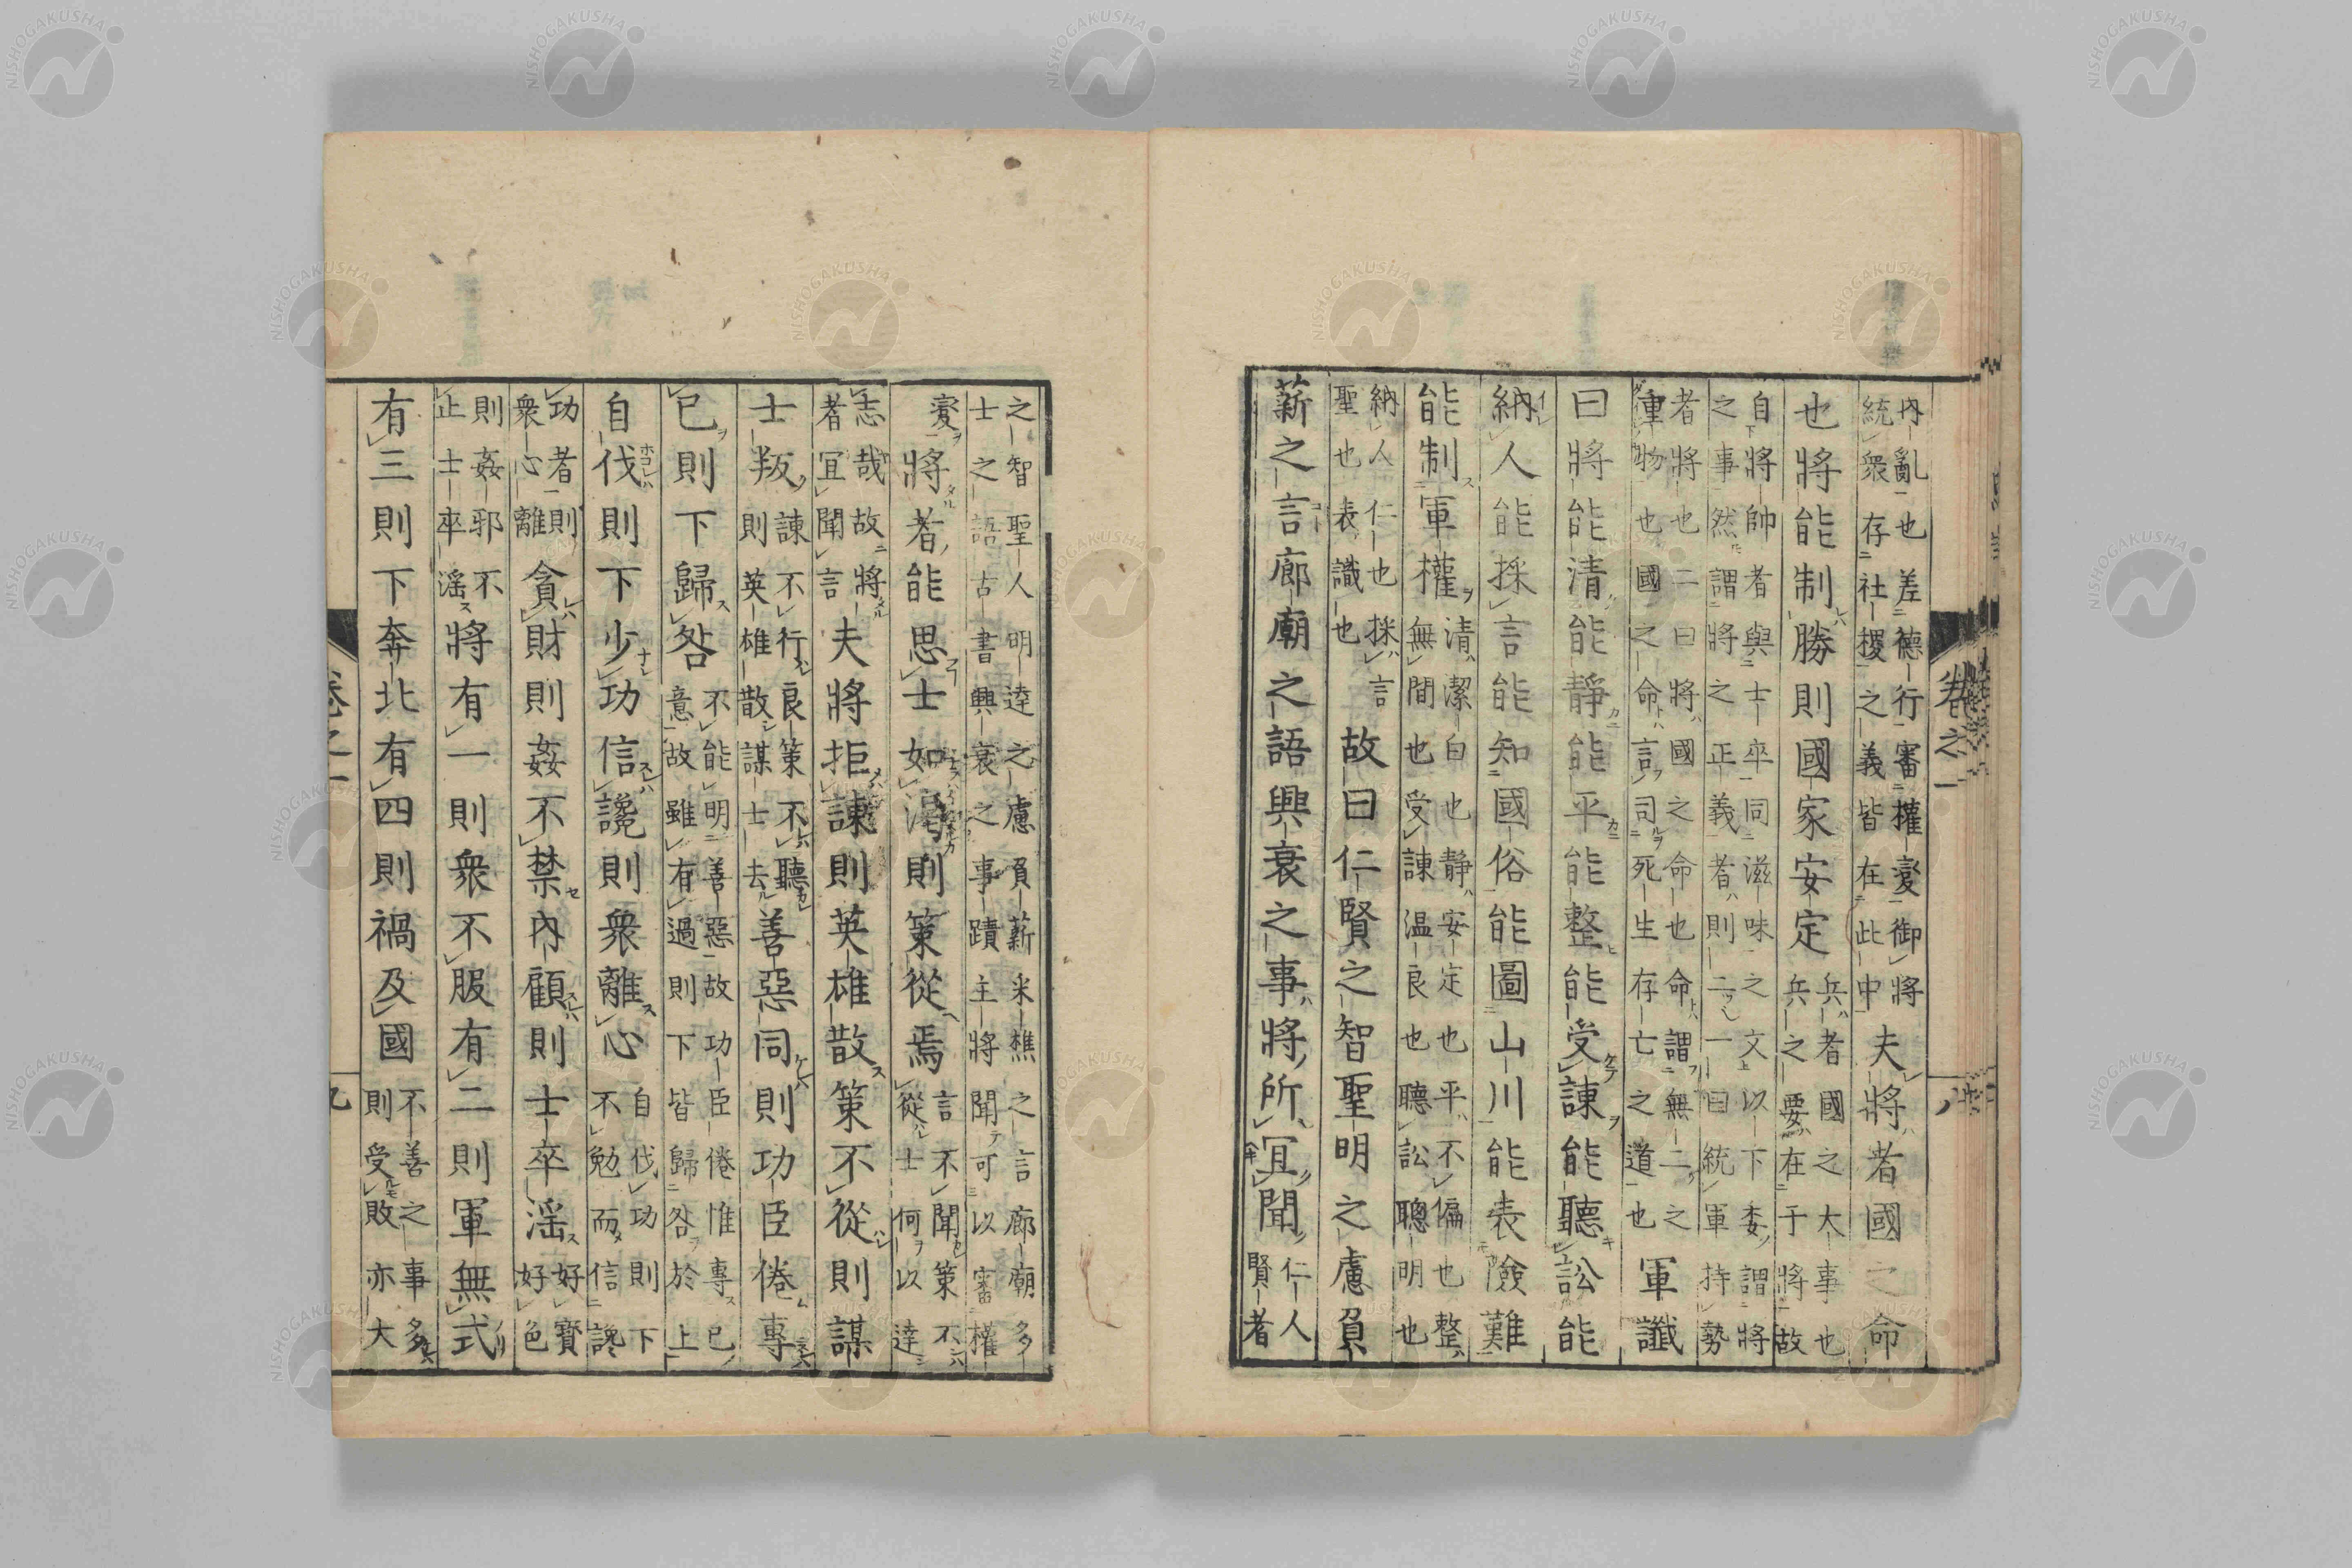 卷之一
八
內亂也差德行審權變御將
統衆存社稷之義皆在此中
夫將者國之命
也將能制勝則國家安定
兵者國之大事也
兵之要在于將故
自將帥者與士卒同滋味之文以下委謂將
之事然謂將之正義者則二一曰統軍持勢
者將也二曰將國之命也命謂無二之
重物也國之命言司死生存亡之道也
軍讖
曰將能清能靜能平能整能受諫能聽訟能
納人能採言能知國俗能圖山川能表險難
能制軍權
清潔白也靜安定也平不偏也整
無間也受諫温良也聽訟聰明也
納人仁也採言
聖也表識也
故曰仁賢之智聖明之慮負
薪之言廊廟之語興衰之事將所宜聞
仁人
賢者
之智聖人明達之慮負薪米樵之言廊廟多
士之語古書興衰之事蹟主將聞可以審權
變
將者能思士如渴則策從焉
言不聞策不
從士何以達
志哉故將
者宜聞言
夫將拒諫則英雄散策不從則謀
士叛
諫不行良策不聽
則英雄散謀士去
善惡同則功臣倦專
已則下歸咎
不能明善惡故功臣倦惟專已
意故雖有過則下皆歸咎於上
自伐則下少功信讒則衆離心
自伐功則下
不勉而信讒
功者則
衆心離
貪財則姦不禁內顧則士卒淫
好寶
好色
則姦邪不
止士卒淫
將有一則衆不服有二則軍無式
有三則下奔北有四則禍及國
不善之事多
則受敗亦大
卷之一
九
NISHOGAKUSHA